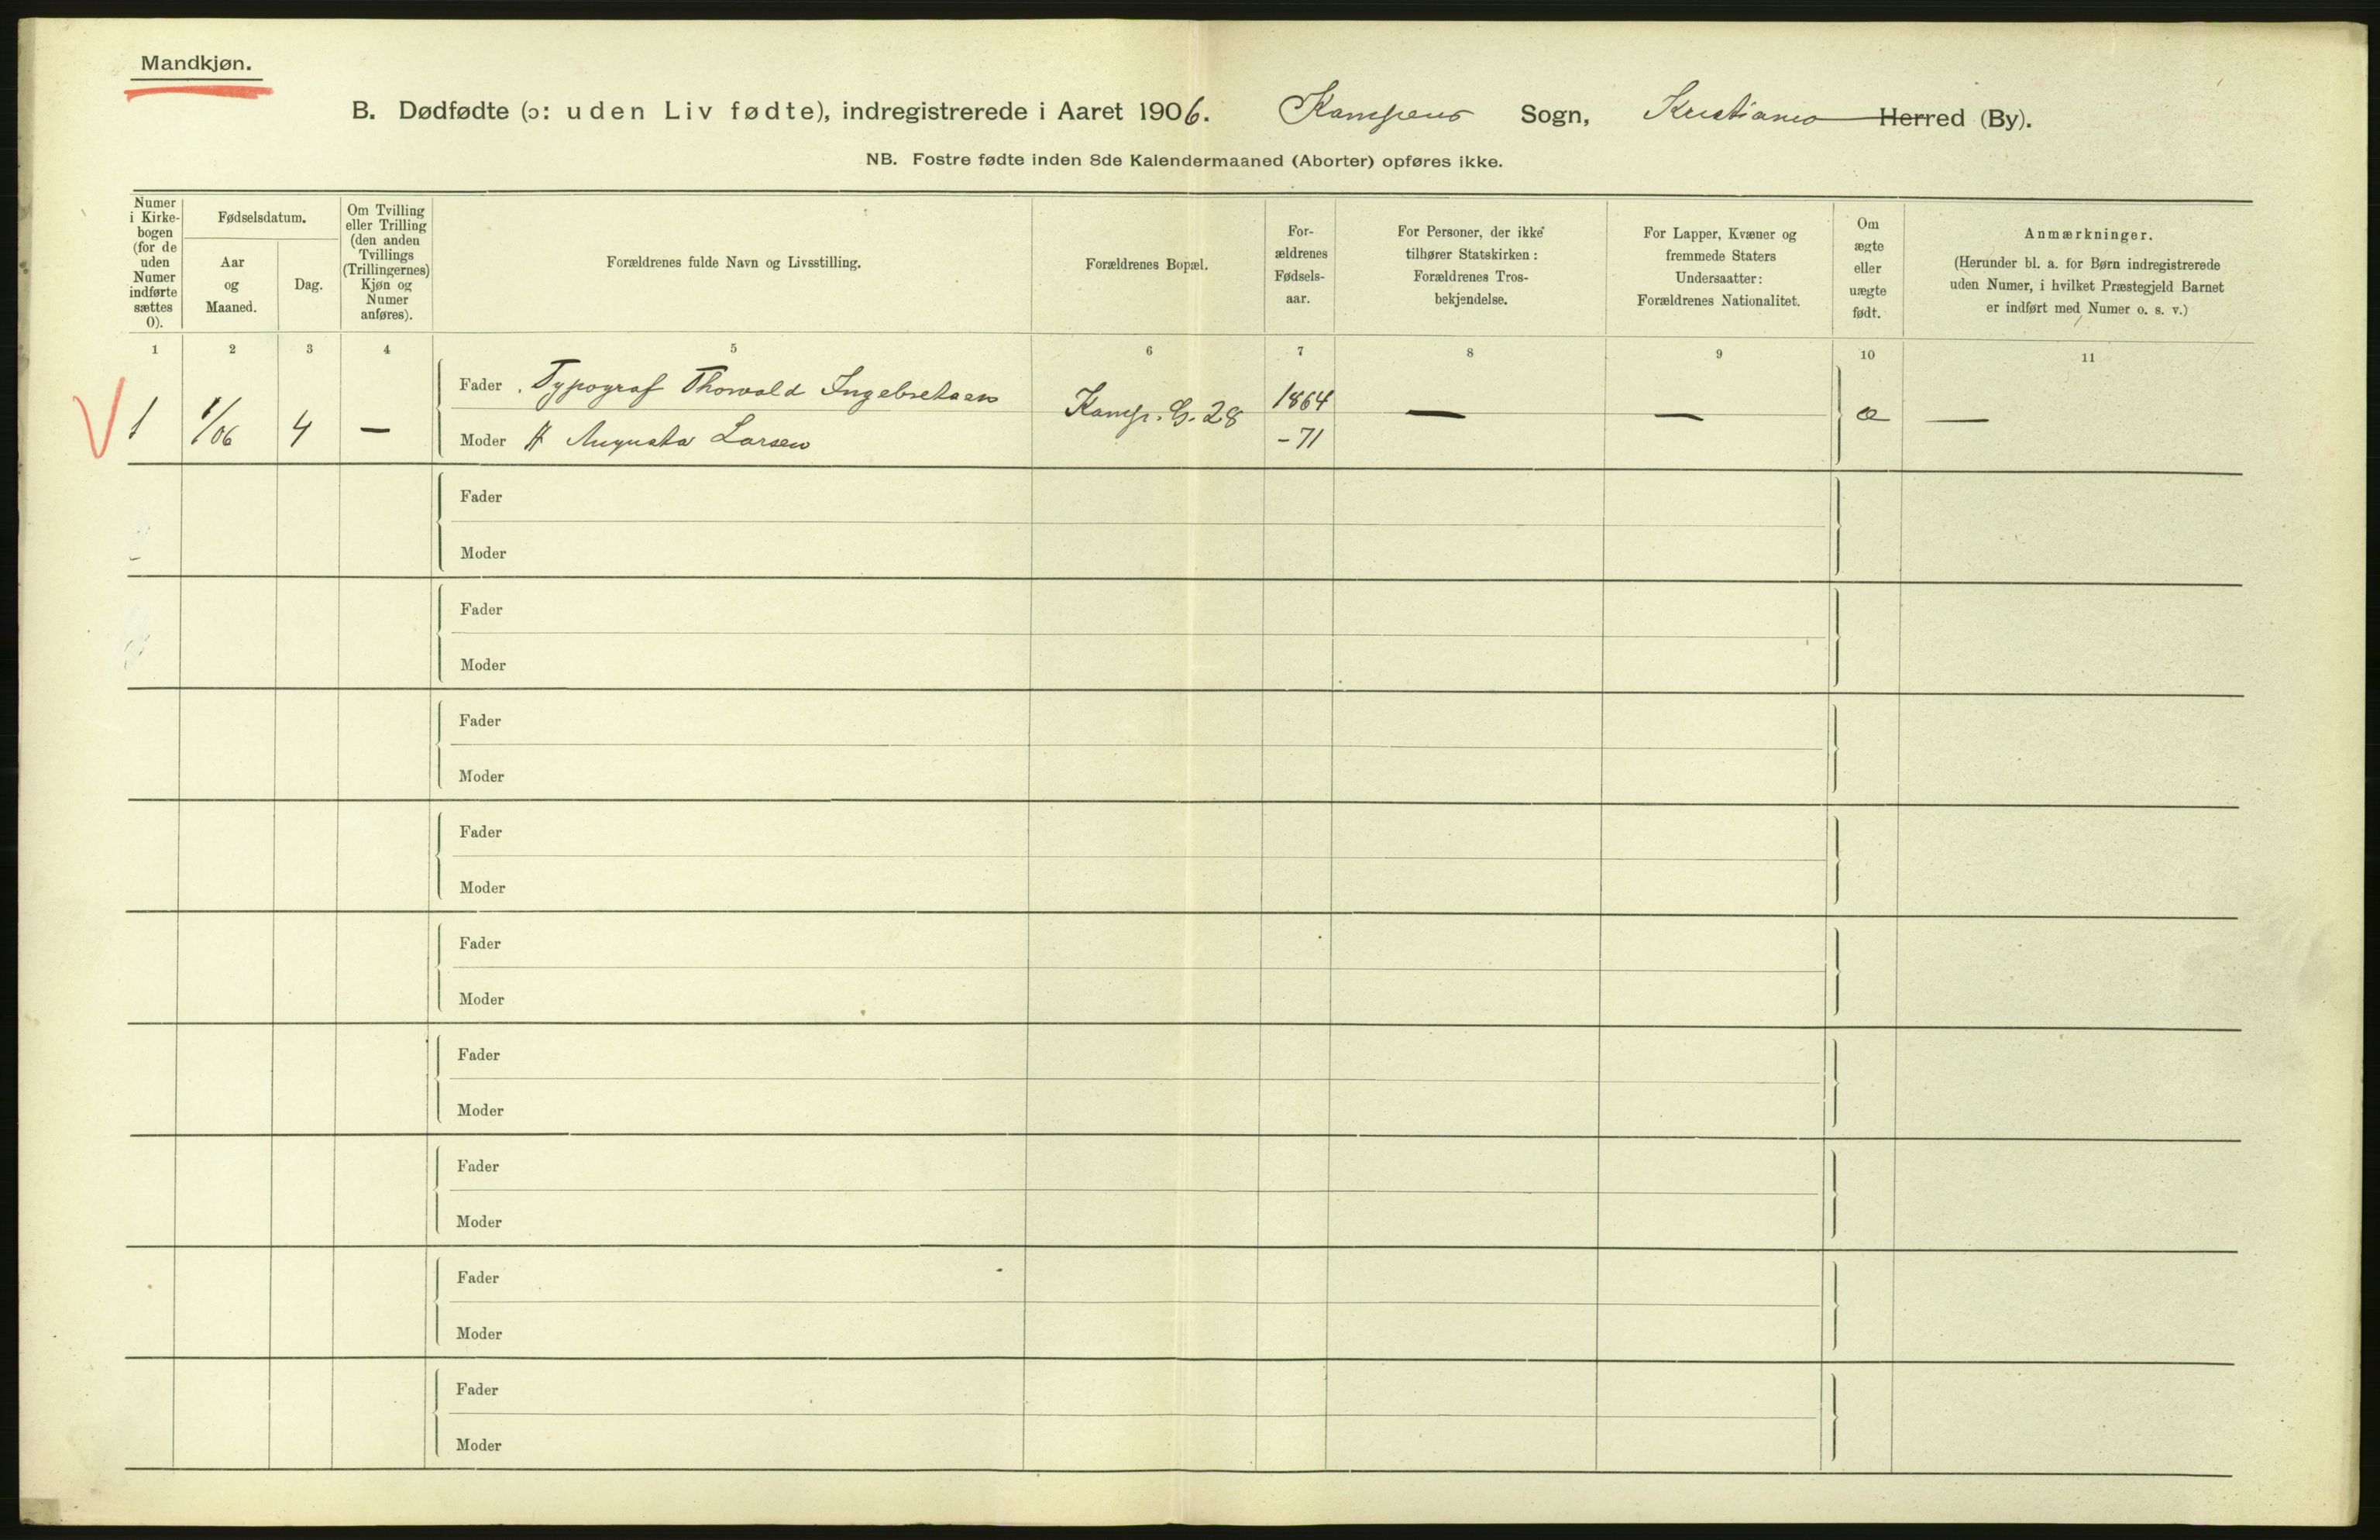 Mandkjøn.
B. Dødfødte (ɔ: uden Liv fødte), indregistrerede i Aaret 1906. Kampens Sogn, Kristiania Herred (By).
NB. Fostre fødte inden 8de Kalendermaaned (Aborter) opføres ikke.
Numer i Kirke-bogen (for de uden Numer indførte sættes 0).
Fødselsdatum.
Aar og Maaned.
Dag.
Om Tvilling eller Trilling (den anden Tvillings (Trillingernes) Kjøn og Numer anføres).
Forældrenes fulde Navn og Livsstilling.
Forældrenes Bopæl.
For-ældrenes Fødsels-aar.
For Personer, der ikke tilhører Statskirken: Forældrenes Tros-bekjendelse.
For Lapper, Kvæner og fremmede Staters Undersaatter: Forældrenes Nationalitet.
Om ægte eller uægte født.
Anmærkninger.
(Herunder bl. a. for Børn indregistrerede uden Numer, i hvilket Præstegjeld Barnet er indført med Numer o. s. v.)
1 2 3 4 5 6 7 8 9 10 11
V 1 1/06 4 — Fader Typograf Thorvald Ingebretsen Kamp. G. 28 1864 — — æ —
Moder H Augusta Larsen -71
Fader
Moder
Fader
Moder
Fader
Moder
Fader
Moder
Fader
Moder
Fader
Moder
Fader
Moder
Fader
Moder
Fader
Moder